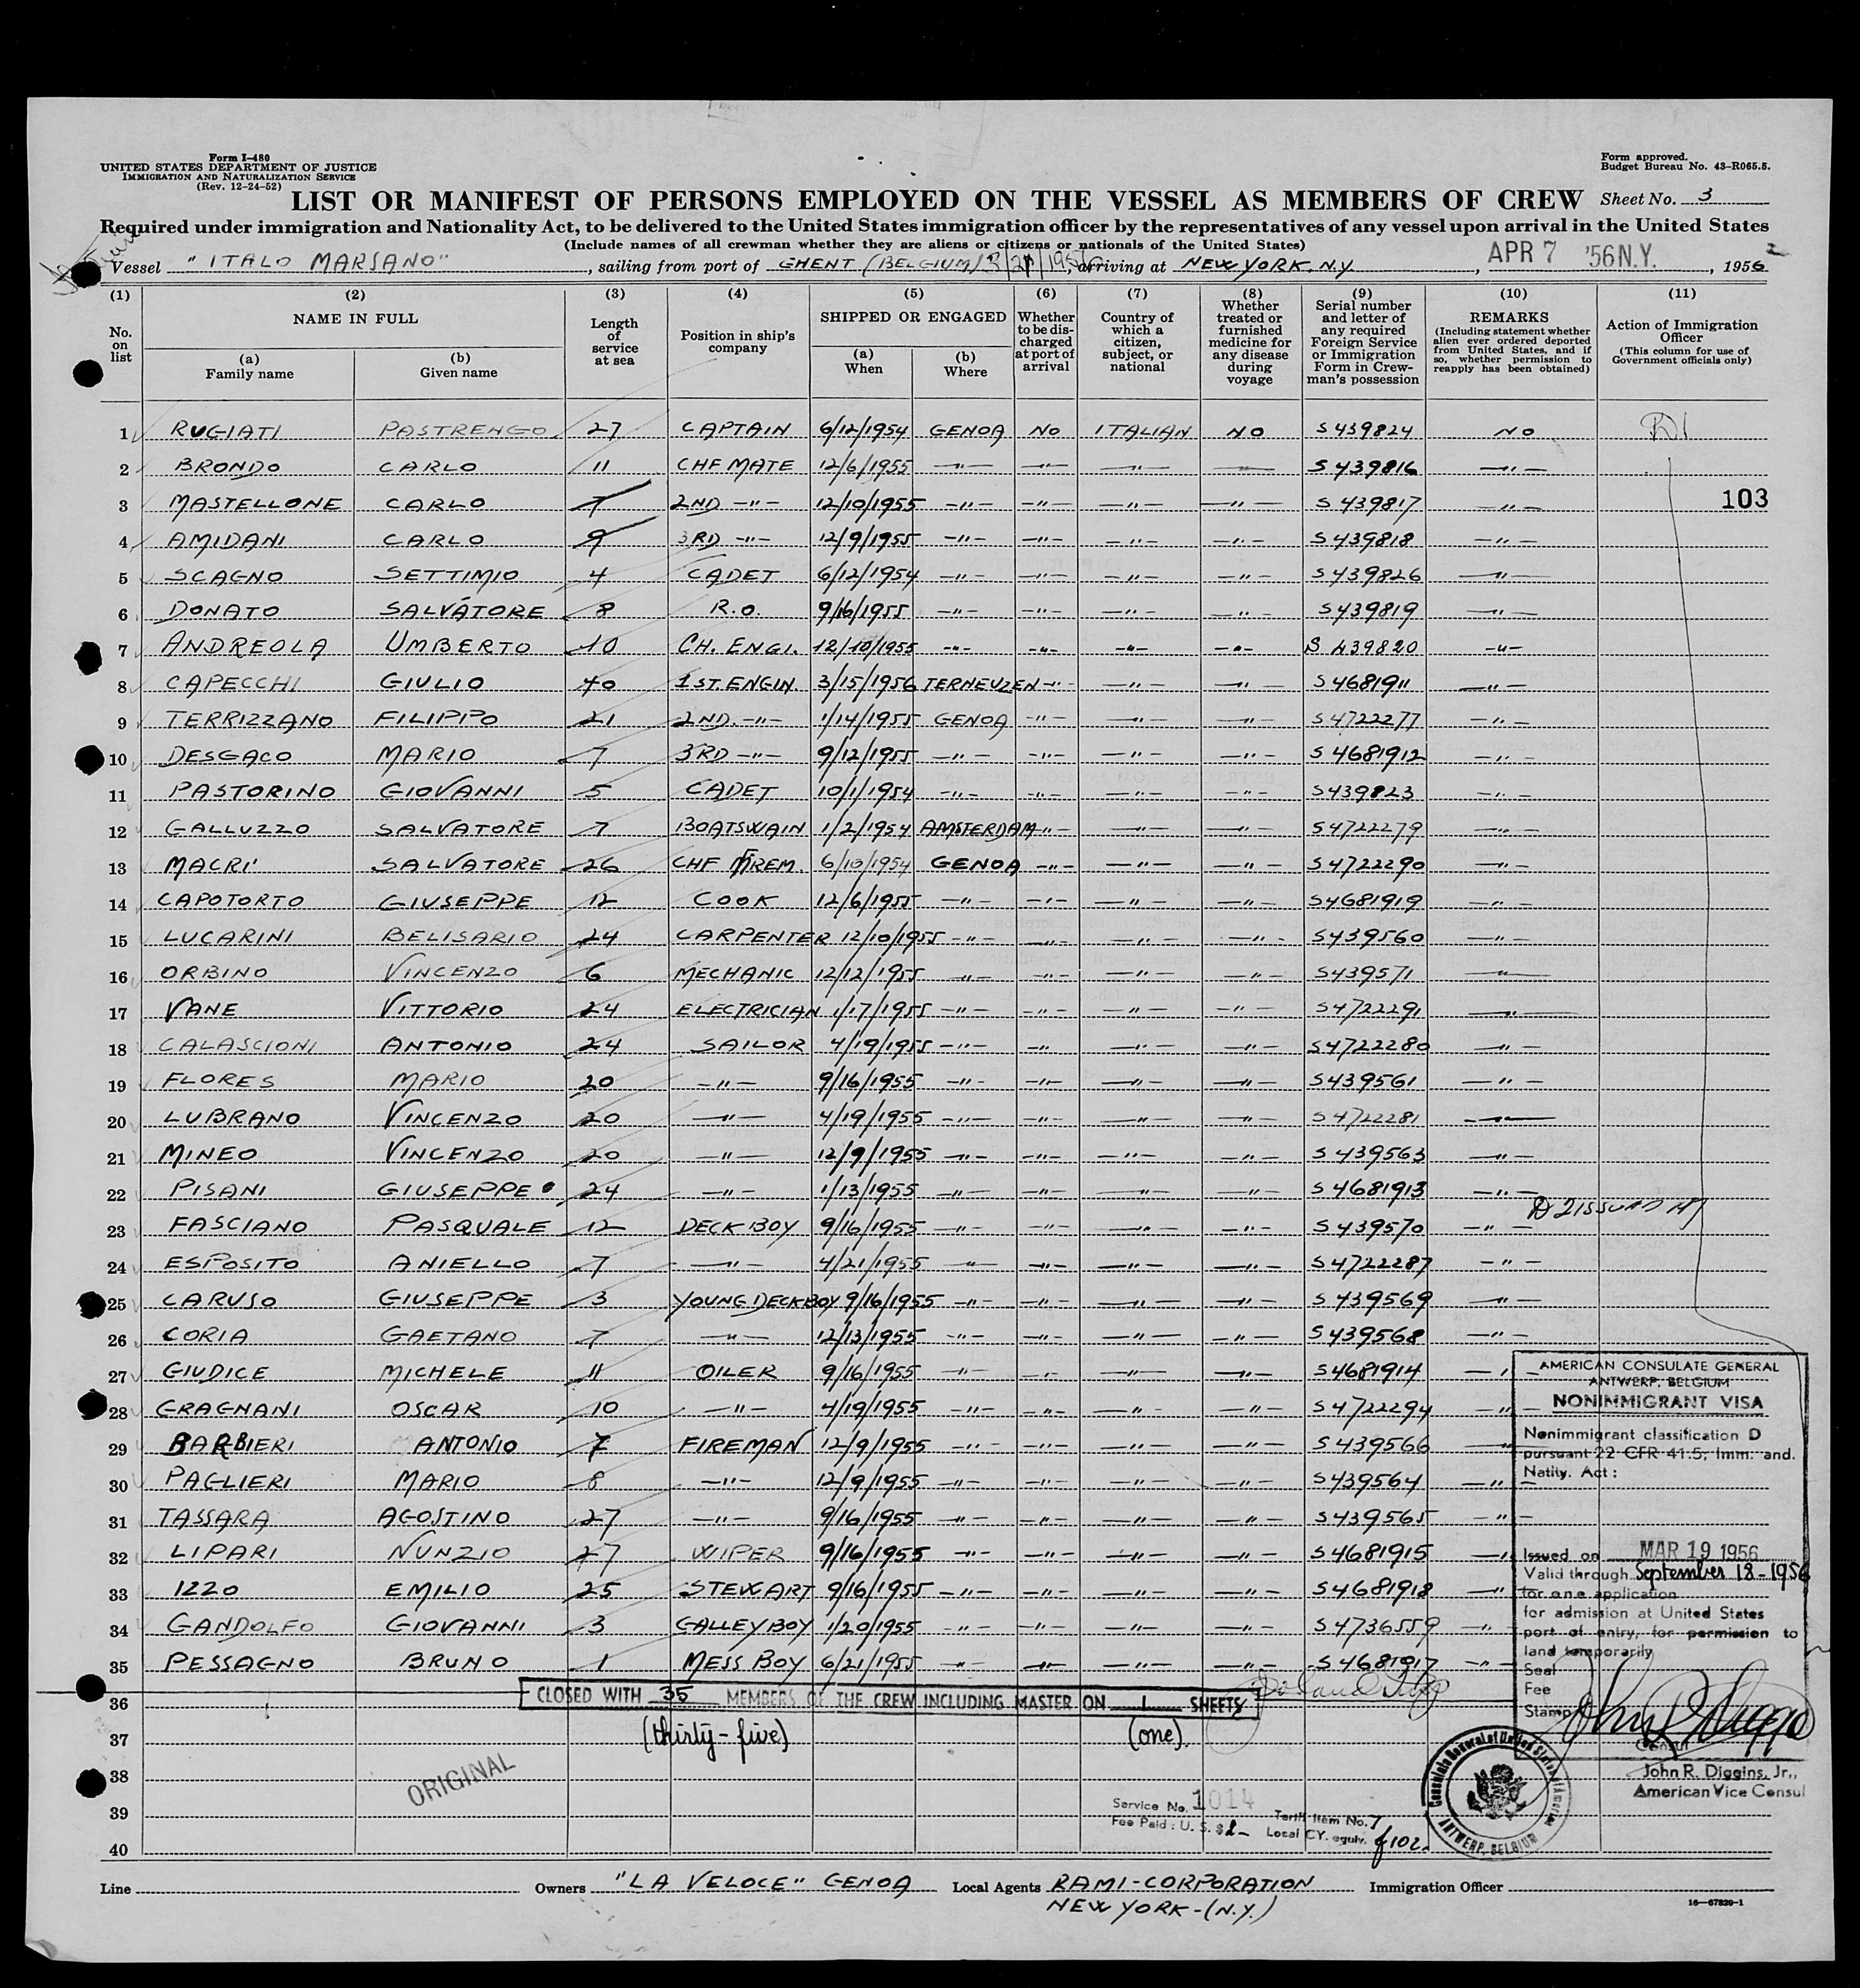 Form I-480
UNITED STATES DEPARTMENT OF JUSTICE
IMMIGRATION AND NATURALIZATION SERVICE
(Rev. 12-24-52)
Form approved.
Budget Bureau No. 43-R065.5.
LIST OR MANIFEST OF PERSONS EMPLOYED ON THE VESSEL AS MEMBERS OF CREW Sheet No. 3
Required under immigration and Nationality Act, to be delivered to the United States immigration officer by the representatives of any vessel upon arrival in the United States
(Include names of all crewman whether they are aliens or citizens or nationals of the United States)
Vessel "ITALO MARSANO", sailing from port of GHENT (BELGIUM), arriving at NEW YORK. N.Y., APR 7 '56 N.Y., 1956
(1) (2) (3) (4) (5) (6) (7) (8) (9) (10) (11)
No. on list NAME IN FULL (a) Family name (b) Given name Length of service at sea Position in ship's company SHIPPED OR ENGAGED (a) When (b) Where Whether to be discharged at port of arrival Country of which a citizen, subject, or national Whether treated or furnished medicine for any disease during voyage Serial number and letter of any required Foreign Service or Immigration Form in Crewman's possession REMARKS (Including statement whether alien ever ordered deported from United States, and if so, whether permission to reapply has been obtained) Action of Immigration Officer (This column for use of Government officials only)
1 RUGIATI PASTRENGO 27 CAPTAIN 6/12/1954 GENOA NO ITALIAN NO S439824 NO
2 BRONDO CARLO 11 CHF MATE 12/6/1955 -"- -"- -"- -"- S439816 -"-
3 MASTELLONE CARLO 7 2ND -"- 12/10/1955 -"- -"- -"- -"- S439817 -"- 103
4 AMIDANI CARLO 9 3RD -"- 12/9/1955 -"- -"- -"- -"- S439818 -"-
5 SCAGNO SETTIMIO 4 CADET 6/12/1954 -"- -"- -"- -"- S439826 -"-
6 DONATO SALVATORE 8 R.O. 9/16/1955 -"- -"- -"- -"- S439819 -"-
7 ANDREOLA UMBERTO 10 CH. ENGI. 12/10/1955 -"- -"- -"- -"- S439820 -"-
8 CAPECCHI GIULIO 40 1ST. ENGIN. 3/15/1956 TERNEUZEN -"- -"- -"- S4681911 -"-
9 TERRIZZANO FILIPPO 21 2ND. -"- 1/14/1955 GENOA -"- -"- -"- S4722277 -"-
10 DESGACO MARIO 7 3RD -"- 9/12/1955 -"- -"- -"- -"- S4681912 -"-
11 PASTORINO GIOVANNI 5 CADET 10/1/1954 -"- -"- -"- -"- S439823 -"-
12 GALLUZZO SALVATORE 7 BOATSWAIN 1/2/1954 AMSTERDAM -"- -"- -"- S4722279 -"-
13 MACRI' SALVATORE 26 CHF FIREM. 6/13/1954 GENOA -"- -"- -"- S4722290 -"-
14 CAPOTORTO GIUSEPPE 12 COOK 12/6/1955 -"- -"- -"- -"- S4681919 -"-
15 LUCARINI BELISARIO 24 CARPENTER 12/10/1955 -"- -"- -"- -"- S439560 -"-
16 ORBINO VINCENZO 6 MECHANIC 12/12/1955 -"- -"- -"- -"- S439571 -"-
17 VANE VITTORIO 24 ELECTRICIAN 1/17/1955 -"- -"- -"- -"- S4722291 -"-
18 CALASCIONI ANTONIO 24 SAILOR 4/19/1955 -"- -"- -"- -"- S4722280 -"-
19 FLORES MARIO 20 -"- 9/16/1955 -"- -"- -"- -"- S439561 -"-
20 LUBRANO VINCENZO 20 -"- 4/19/1955 -"- -"- -"- -"- S4722281 -"-
21 MINEO VINCENZO 20 -"- 12/9/1955 -"- -"- -"- -"- S439563 -"-
22 PISANI GIUSEPPE 24 -"- 1/13/1955 -"- -"- -"- -"- S4681913 -"-
23 FASCIANO PASQUALE 12 DECK BOY 9/16/1955 -"- -"- -"- -"- S439570 -"-
24 ESPOSITO ANIELLO 7 -"- 4/21/1955 -"- -"- -"- -"- S4722287 -"-
25 CARUSO GIUSEPPE 3 YOUNG DECKBOY 9/16/1955 -"- -"- -"- -"- S439569 -"-
26 CORIA GAETANO 7 -"- 12/13/1955 -"- -"- -"- -"- S439568 -"-
27 GIUDICE MICHELE 11 OILER 9/16/1955 -"- -"- -"- -"- S4681914 -"-
28 GRAGNANI OSCAR 10 -"- 4/19/1955 -"- -"- -"- -"- S4722294 -"-
29 BARBIERI ANTONIO 7 FIREMAN 12/9/1955 -"- -"- -"- -"- S439566 -"-
30 PAGLIERI MARIO 8 -"- 12/9/1955 -"- -"- -"- -"- S439564 -"-
31 TASSARA AGOSTINO 27 -"- 9/16/1955 -"- -"- -"- -"- S439565 -"-
32 LIPARI NUNZIO 27 WIPER 9/16/1955 -"- -"- -"- -"- S4681915 -"-
33 IZZO EMILIO 25 STEWART 9/16/1955 -"- -"- -"- -"- S4681918 -"-
34 GANDOLFO GIOVANNI 3 GALLEY BOY 1/20/1955 -"- -"- -"- -"- S4736559 -"-
35 PESSAGNO BRUNO 1 MESS BOY 6/21/1955 -"- -"- -"- -"- S4681917 -"-
36
37
38
39
40
AMERICAN CONSULATE GENERAL
ANTWERP, BELGIUM
NONIMMIGRANT VISA
Nonimmigrant classification D
pursuant 22 CFR 41.5, Imm. and.
Natity. Act:
Issued on MAR 19 1956
Valid through September 18-1956
for one application
for admission at United States
port of entry, for permission to
land temporarily
Seal
Fee
Stamp
Consul
John R. Diggins, Jr.,
American Vice Consul
CLOSED WITH 35 MEMBERS OF THE CREW INCLUDING MASTER ON 1 SHEETS
(thirty-five) (one).
ORIGINAL
Service No. 1014
Fee Paid: U. S. $2-
Tariff Item No. 7
Local CY. equiv. f102.
Consulate General of United States of America
ANTWERP, BELGIUM
Line Owners "LA VELOCE" GENOA Local Agents RAMI-CORPORATION Immigration Officer
NEW YORK-(N.Y.)
16-67829-1